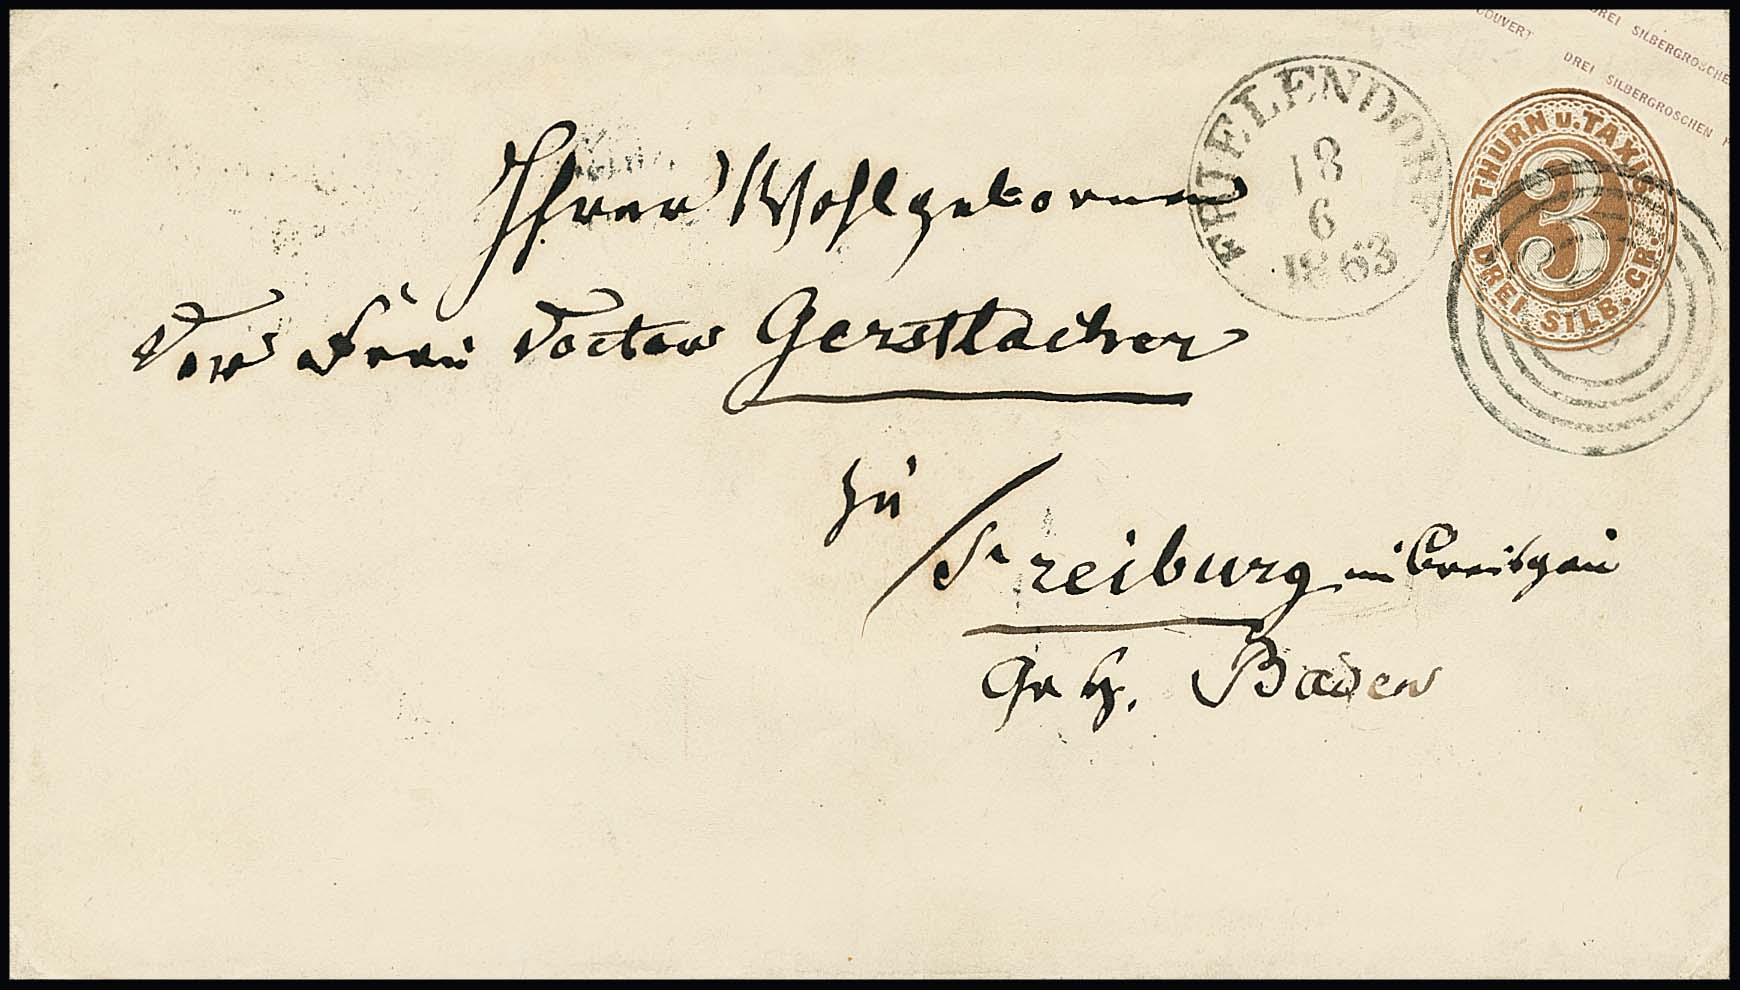 DREI SILBERGROSCHEN
COUVERT DREI SILBERGROSCHEN
FRIELENDORF
18
6
1863
THURN u. TAXIS
3
DREI SILB. GR.
Ihrer Wohlgebornen
der Frau Doctor Gerstlacher
zu
Freiburg im Breisgau
Gr H. Baden